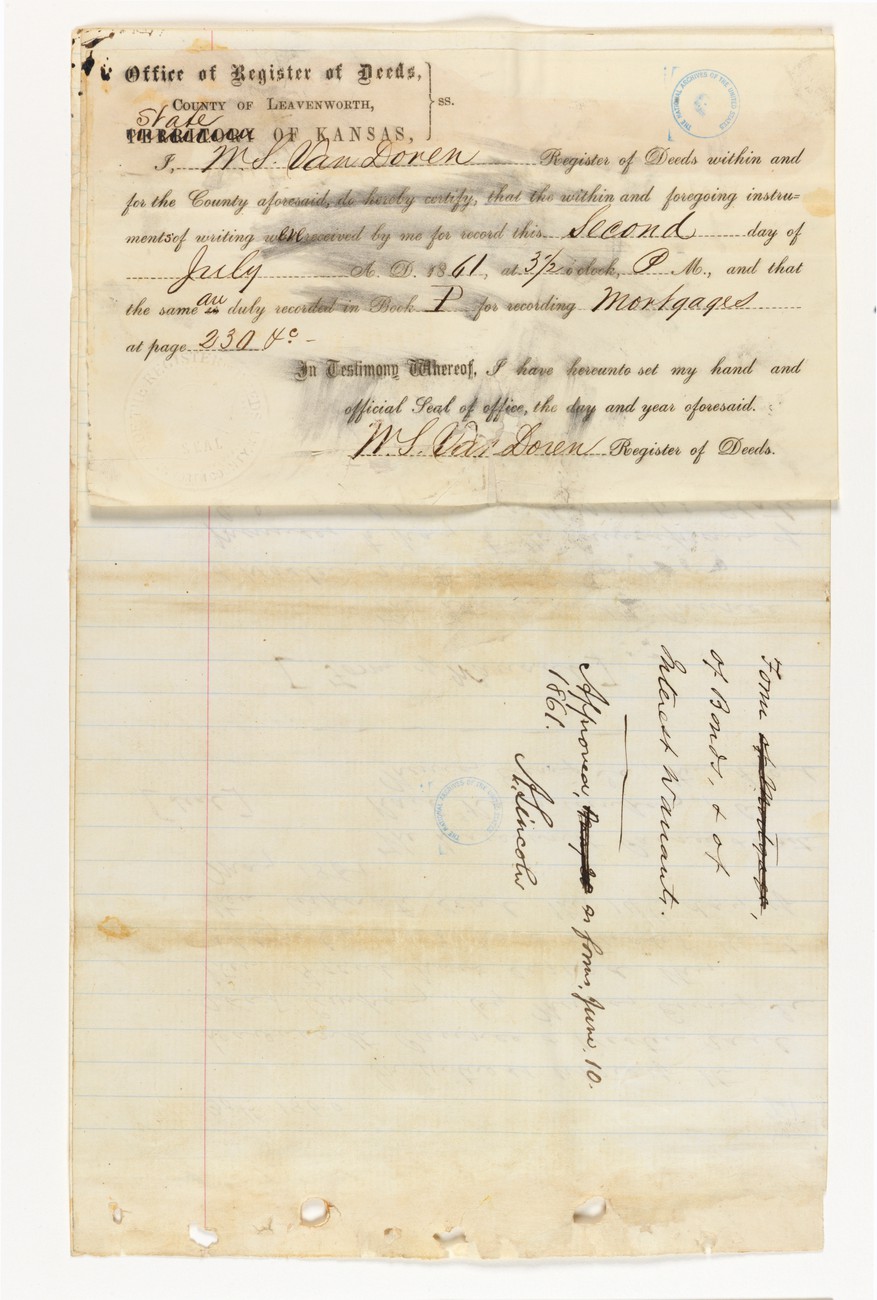 Office of Register of Deeds,
County of Leavenworth, ss.
State
TERRITORY OF KANSAS,
I, W. S. Van Doren Register of Deeds within and
for the County aforesaid, do hereby certify, that the within and foregoing instru=
ments of writing were received by me for record this Second day of
July A. D. 1861, at 3½ o'clock, P M., and that
the same are duly recorded in Book P for recording Mortgages
at page 230 &c -
In Testimony Whereof, I have hereunto set my hand and
official Seal of office, the day and year aforesaid.
W. S. Van Doren Register of Deeds.
THE NATIONAL ARCHIVES OF THE UNITED STATES
Form of Mortgage,
of Bonds, & of
Interest Warrants.
Approved, as forms, June, 10.
1861.
A. Lincoln
THE NATIONAL ARCHIVES OF THE UNITED STATES